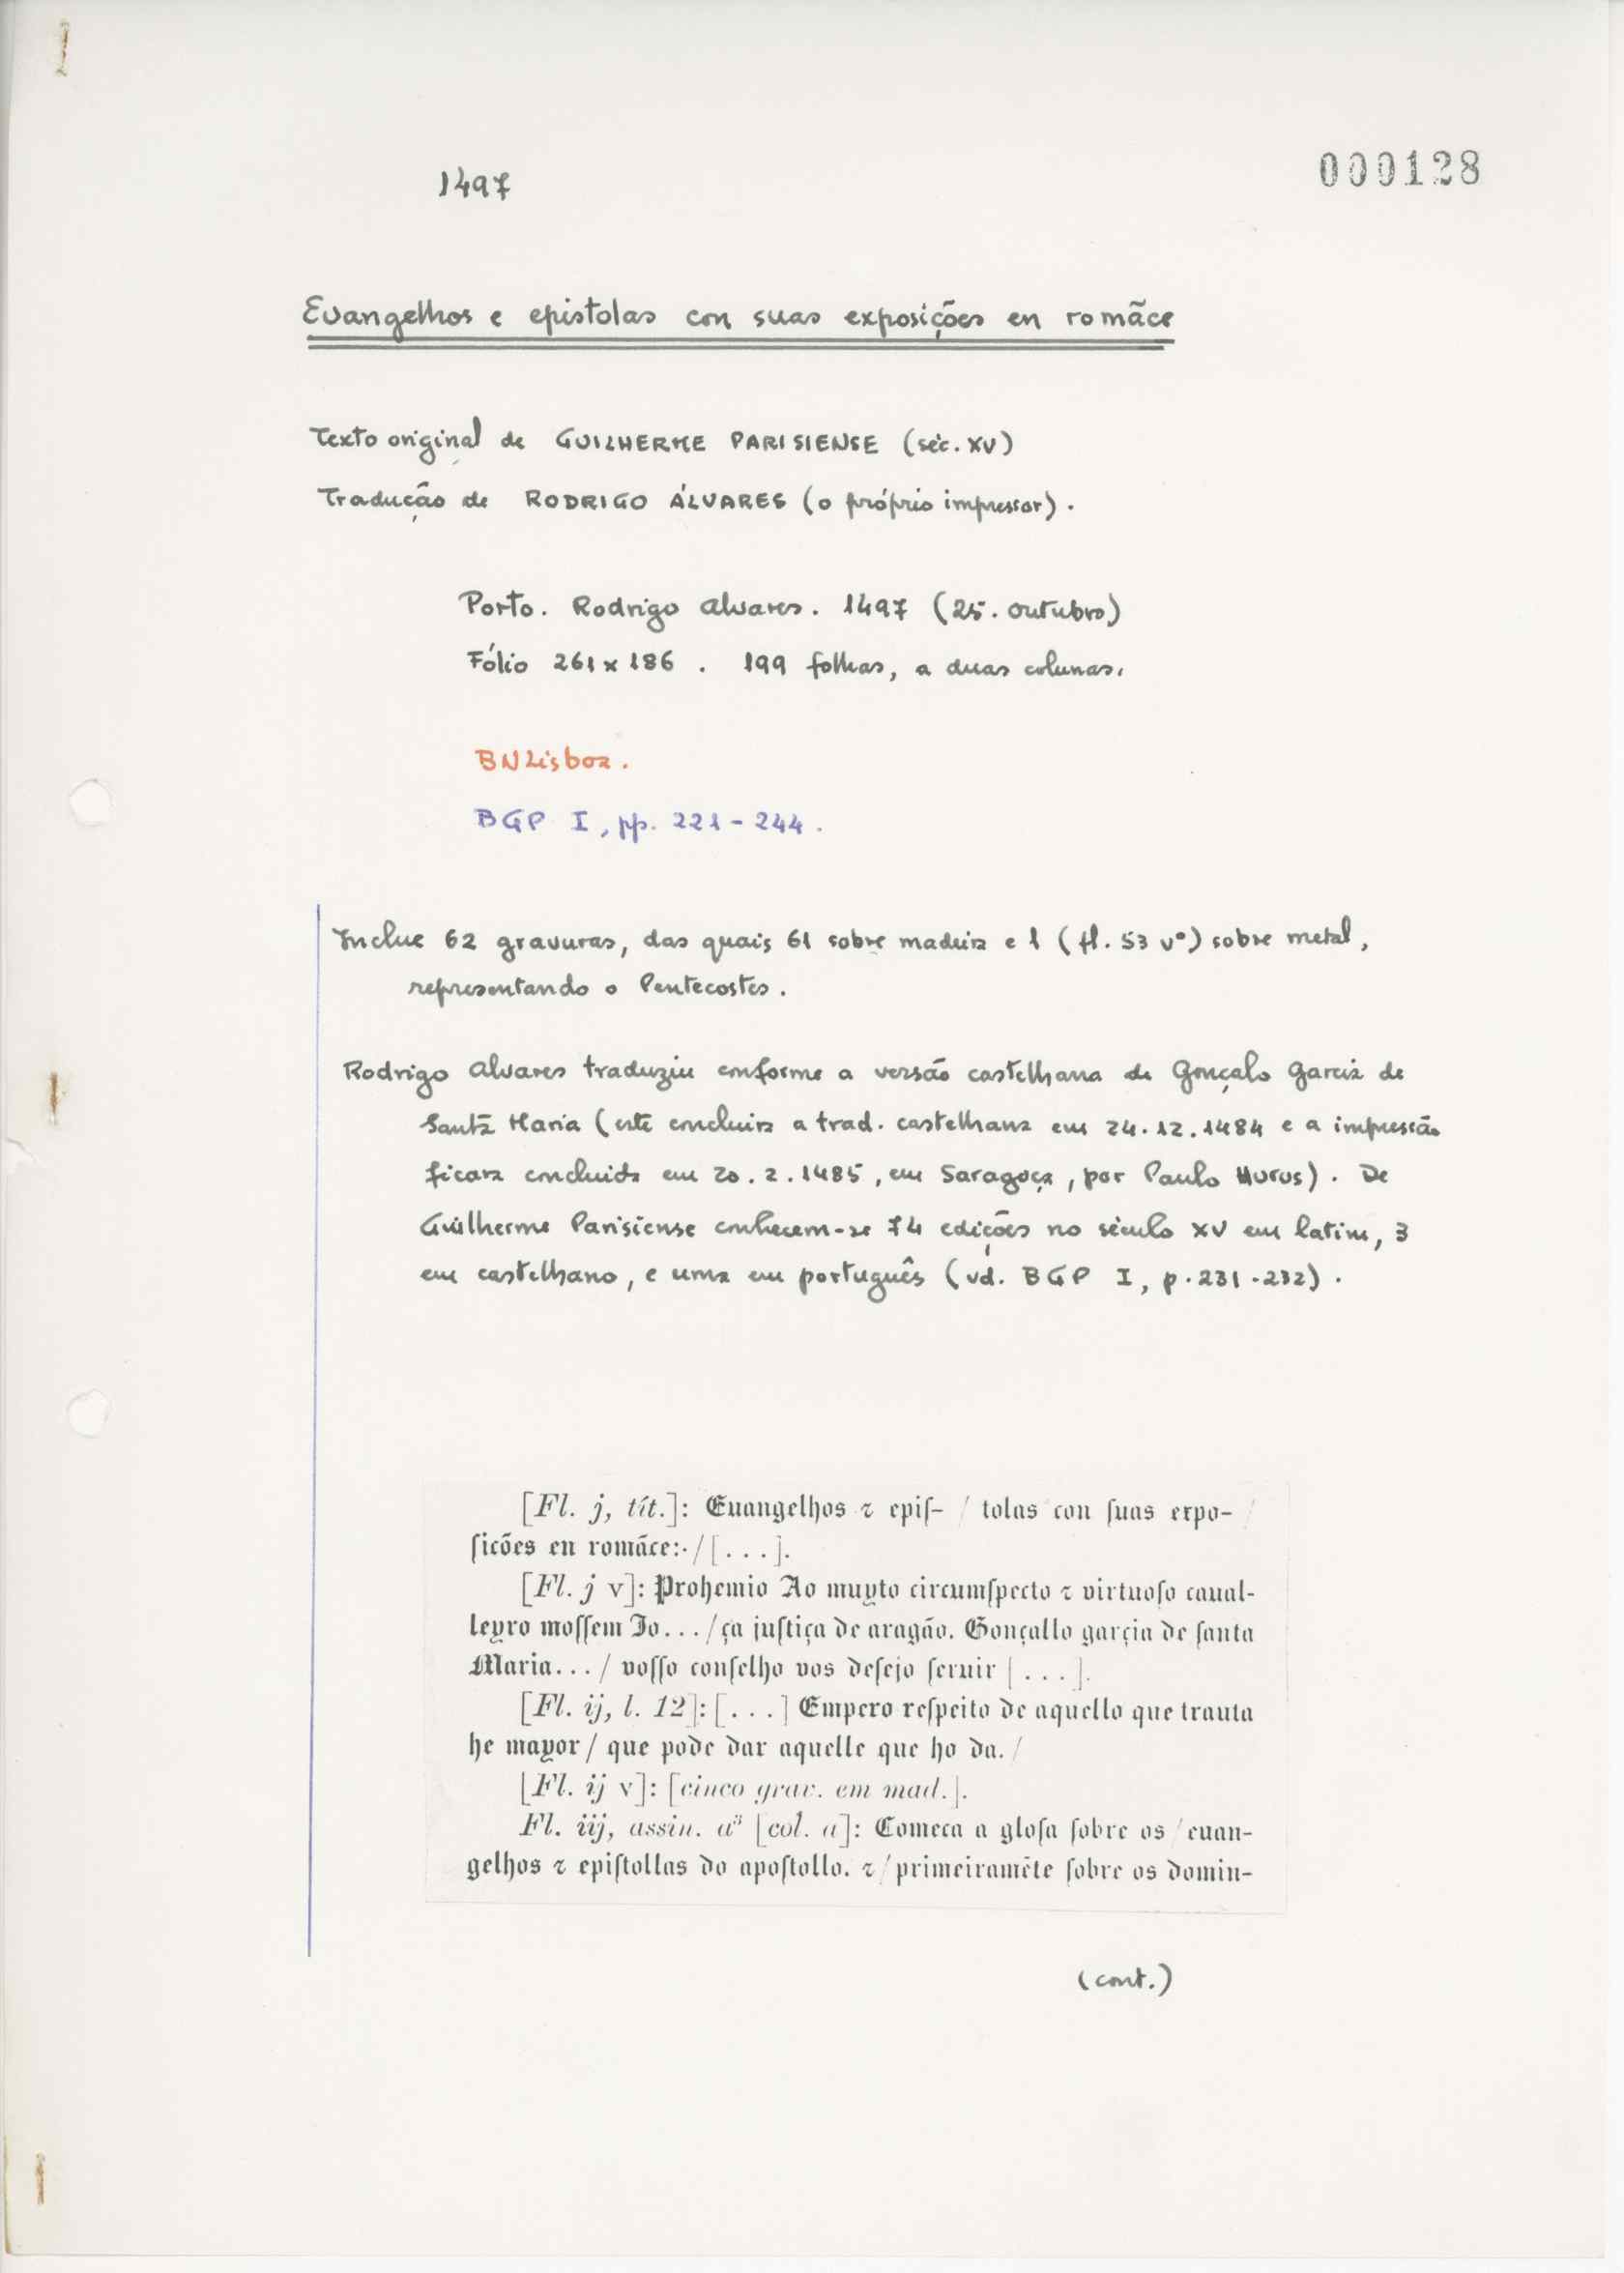 1497
000128
Evangelhos e epistolas con suas exposições en romãce
Texto original de GUILHERME PARISIENSE (séc. XV)
Tradução de RODRIGO ÁLVARES (o próprio impressor).
Porto. Rodrigo Alvares. 1497 (25. Outubro)
Fólio 261 x 186 . 199 folhas, a duas colunas.
BNLisboa.
BGP I, pp. 221-244.
Inclue 62 gravuras, das quais 61 sobre madeira e 1 (fl. 53 vº) sobre metal,
representando o Pentecostes.
Rodrigo Alvares traduziu conforme a versão castelhana de Gonçalo Garcia de
Santa Maria (este concluira a trad. castelhana em 24.12.1484 e a impressão
ficara concluida em 20.2.1485, em Saragoça, por Paulo Hurus). De
Guilherme Parisiense conhecem-se 74 edições no século XV em latim, 3
em castelhano, e uma em português (vd. BGP I, p. 231-232).
[Fl. j, tít.]: Euangelhos ⁊ epiſ- / tolas con ſuas expo- /
ſicões en romãce:·/ [...].
[Fl. j v]: Prohemio Ao muyto circumſpecto ⁊ virtuoſo caual-
leyro moſſem Jo... / ça juſtiça de aragão. Gonçallo garçia de ſanta
Maria... / voſſo conſelho vos deſejo ſeruir [...].
[Fl. ij, l. 12]: [...] Empero reſpeito de aquello que trauta
he mayor / que pode dar aquelle que ho da. /
[Fl. ij v]: [cinco grav. em mad.].
Fl. iij, assin. a³ [col. a]: Comeca a gloſa ſobre os / euan-
gelhos ⁊ epiſtollas do apoſtollo. ⁊ / primeiramẽte ſobre os domin-
(cont.)